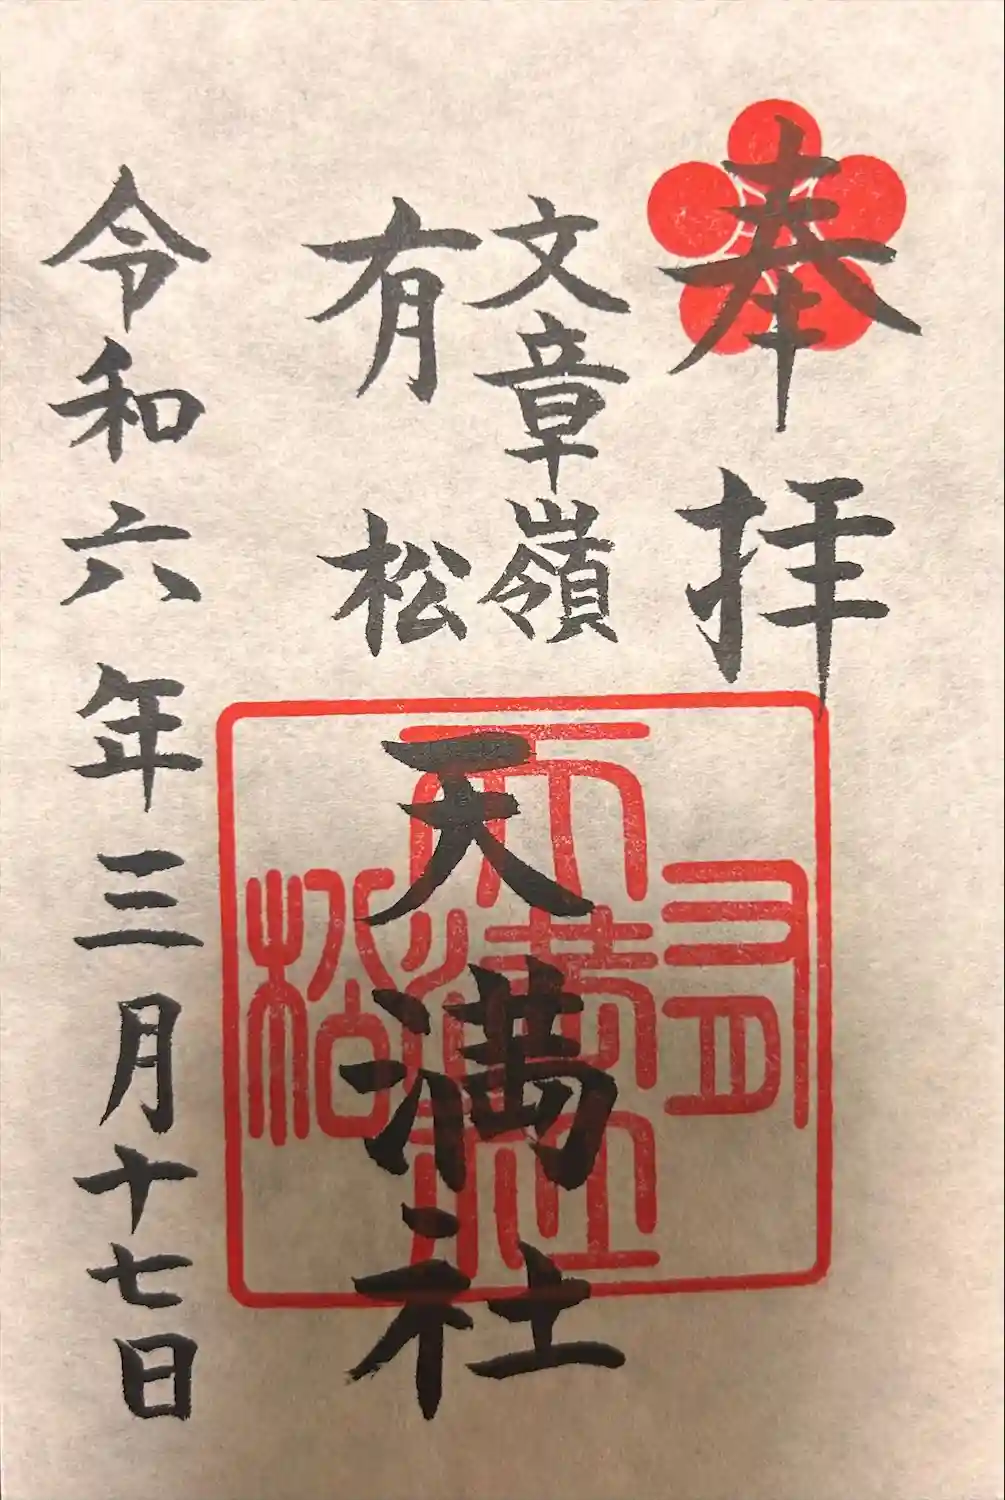 奉拝
文章嶺
有松
天満社
令和六年三月十七日
有松天満社